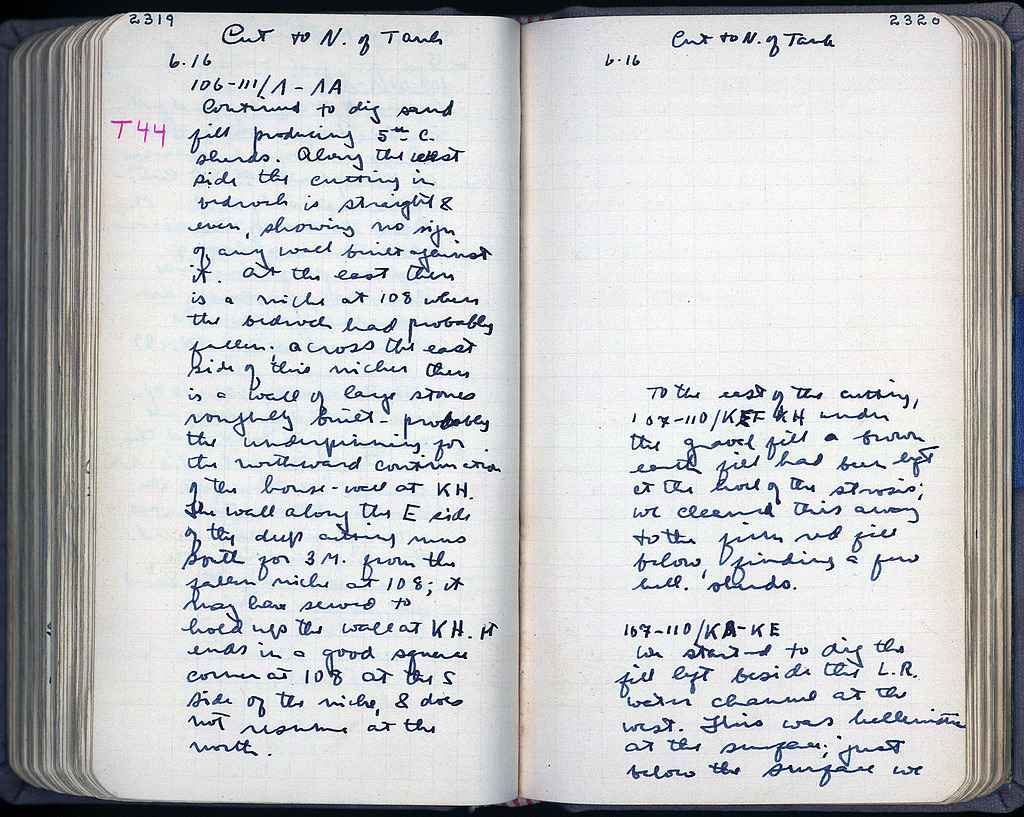 2319
Cut to N. of Tank
6.16
106-III/Λ-ΛA
Continued to dig sand
T 44
fill producing 5th C.
sherds. Along the west
side the cutting in
bedrock is straight &
even, showing no sign
of any wall built against
it. At the east there
is a niche at 108 where
the bedrock had probably
fallen; across the east
side of this niche there
is a wall of large stones
roughly built - probably
the underpinning for
the northward continuation
of the house-wall at KH.
The wall along the E side
of the deep cutting runs
south for 3M. from the
fallen niche at 108; it
may have served to
hold up the wall at KH. It
ends in a good square
corner at 108 at the S
side of the niche, & does
not resume at the
north.
2320
Cut to N. of Tank
6.16
To the east of the cutting,
107-110/KH under
the gravel fill a brown
earth fill had been left
at the level of the strosis;
we cleaned this away
to the firm red fill
below, finding a few
hell. sherds.
107-110/KA-KE
We started to dig the
fill left beside the L.R.
water channel at the
west. This was hellenistic
at the surface; just
below the surface we